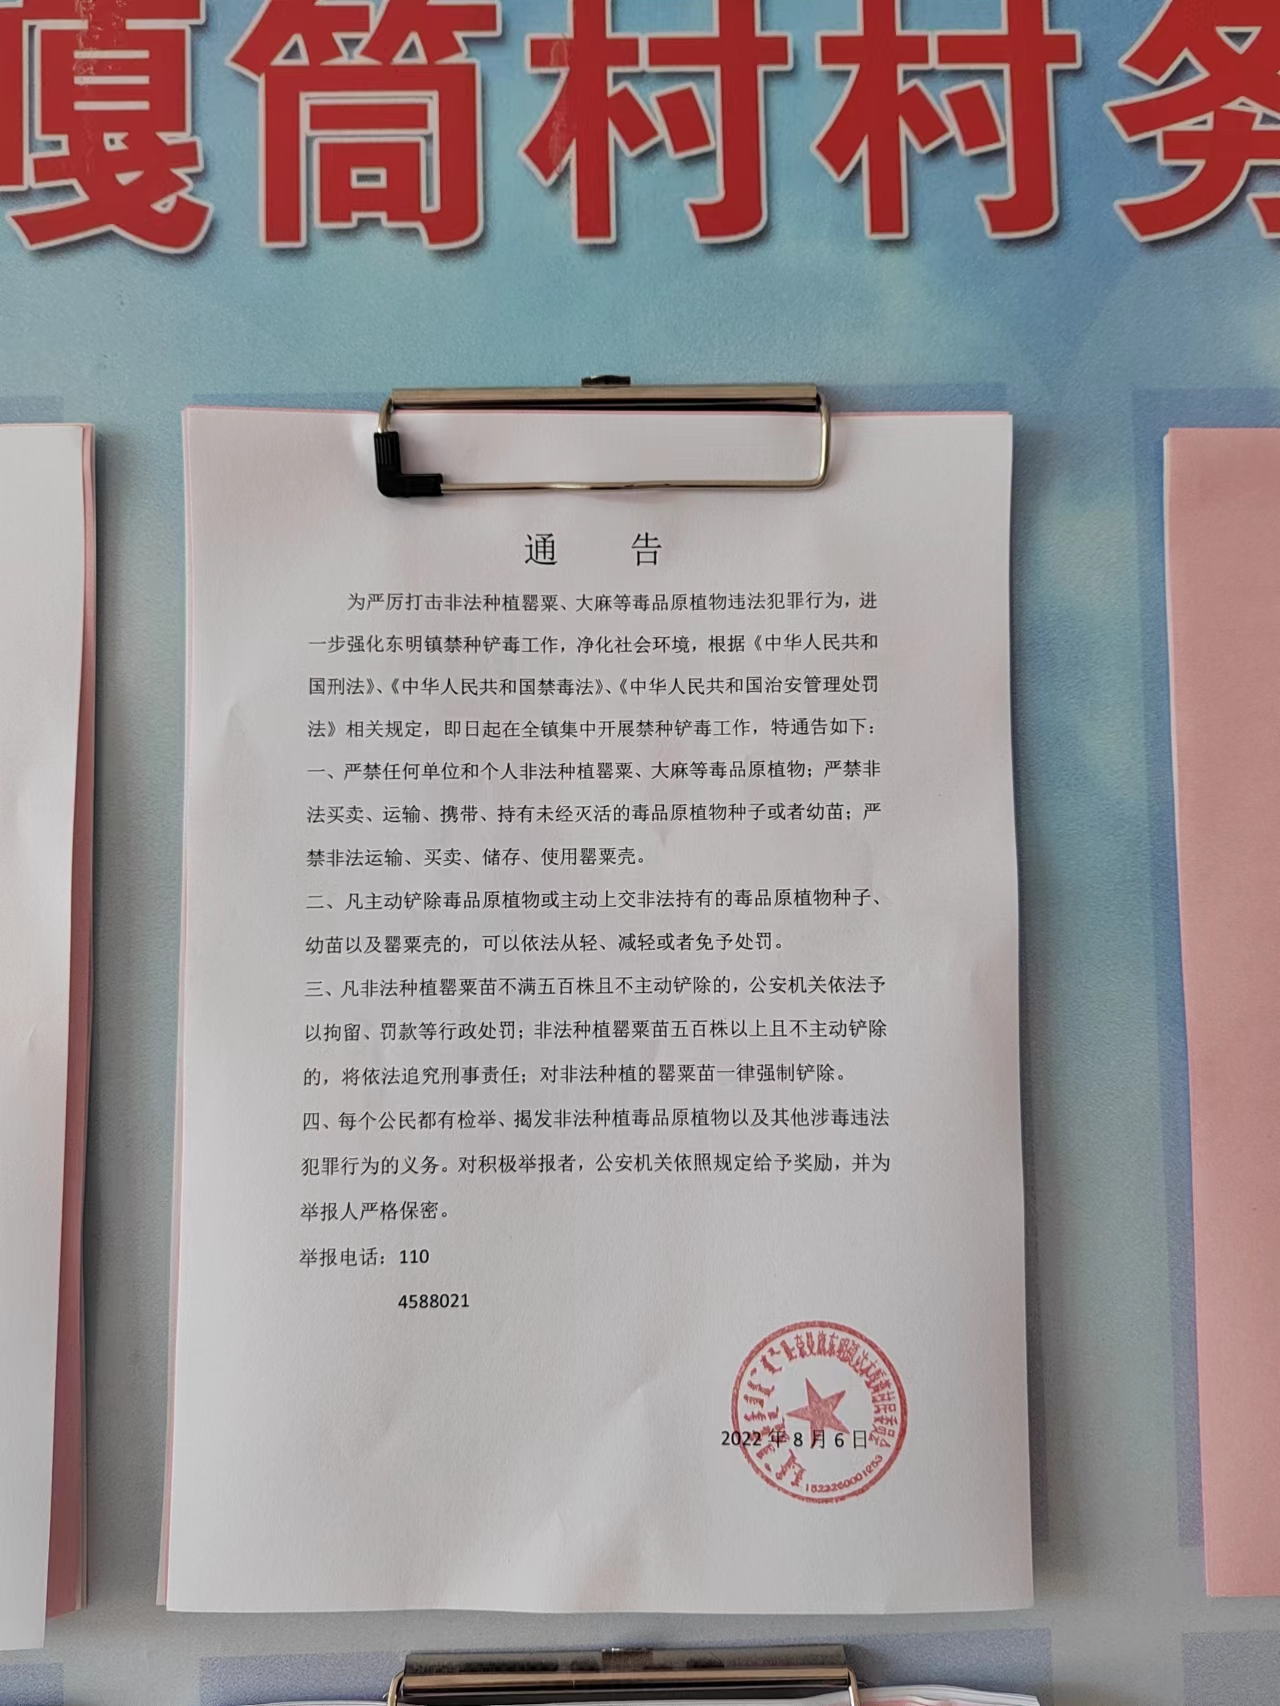 嘎筒村村务
通 告
为严厉打击非法种植罂粟、大麻等毒品原植物违法犯罪行为，进
一步强化东明镇禁种铲毒工作，净化社会环境，根据《中华人民共和
国刑法》、《中华人民共和国禁毒法》、《中华人民共和国治安管理处罚
法》相关规定，即日起在全镇集中开展禁种铲毒工作，特通告如下：
一、严禁任何单位和个人非法种植罂粟、大麻等毒品原植物；严禁非
法买卖、运输、携带、持有未经灭活的毒品原植物种子或者幼苗；严
禁非法运输、买卖、储存、使用罂粟壳。
二、凡主动铲除毒品原植物或主动上交非法持有的毒品原植物种子、
幼苗以及罂粟壳的，可以依法从轻、减轻或者免予处罚。
三、凡非法种植罂粟苗不满五百株且不主动铲除的，公安机关依法予
以拘留、罚款等行政处罚；非法种植罂粟苗五百株以上且不主动铲除
的，将依法追究刑事责任；对非法种植的罂粟苗一律强制铲除。
四、每个公民都有检举、揭发非法种植毒品原植物以及其他涉毒违法
犯罪行为的义务。对积极举报者，公安机关依照规定给予奖励，并为
举报人严格保密。
举报电话：110
4588021
2022 年 8 月 6 日